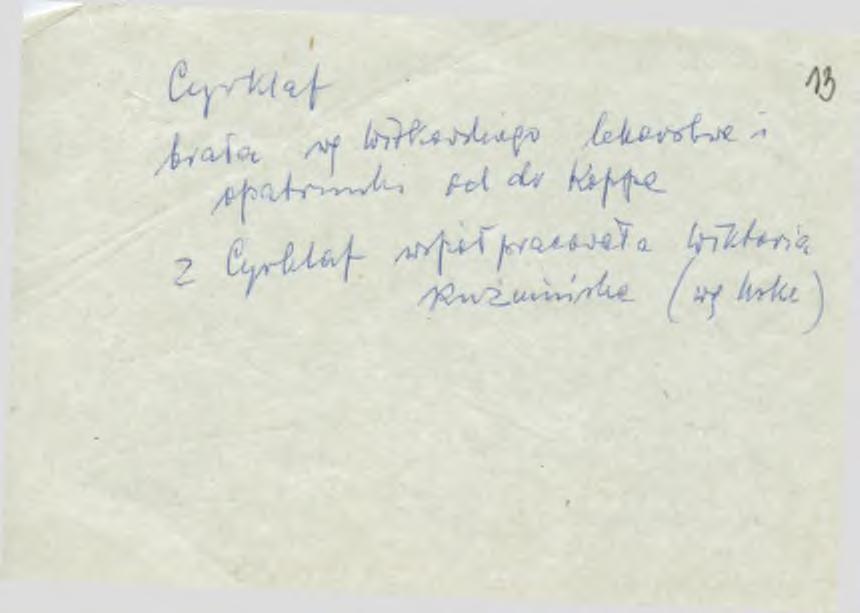 13
Cyrklaf
brała wg Witkowskiego lekarstwa i
opatrunki od dr Koppa
z Cyrklaf współpracowała Wiktoria
Kuźmińska (wg )